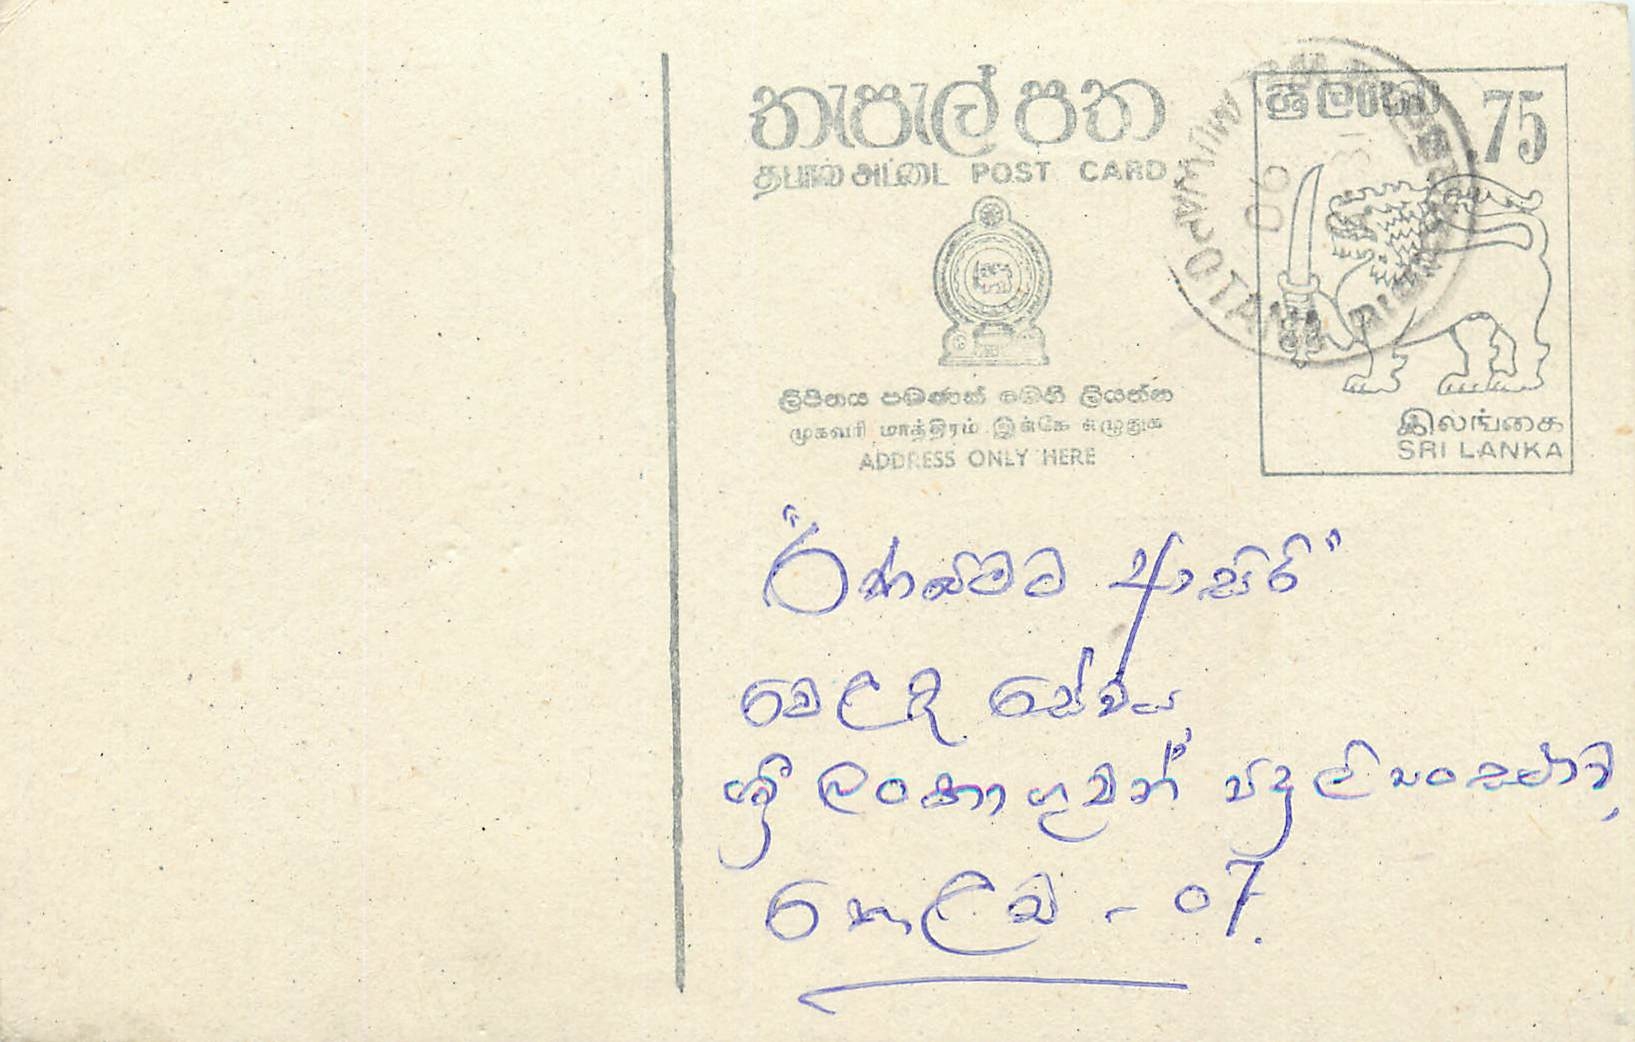 තැපැල් පත
தபால் அட்டை POST CARD
ලිපිනය පමණක් මෙහි ලියන්න
முகவரி மாத்திரம் இங்கே எழுதுக
ADDRESS ONLY HERE
ශ්‍රී ලංකා
.75
இலங்கை
SRI LANKA
06
ආසිරි"
වෙළඳ සේවය
ශ්‍රී ලංකා ගුවන් විදුලි සංස්ථාව,
කොළඹ - 07.